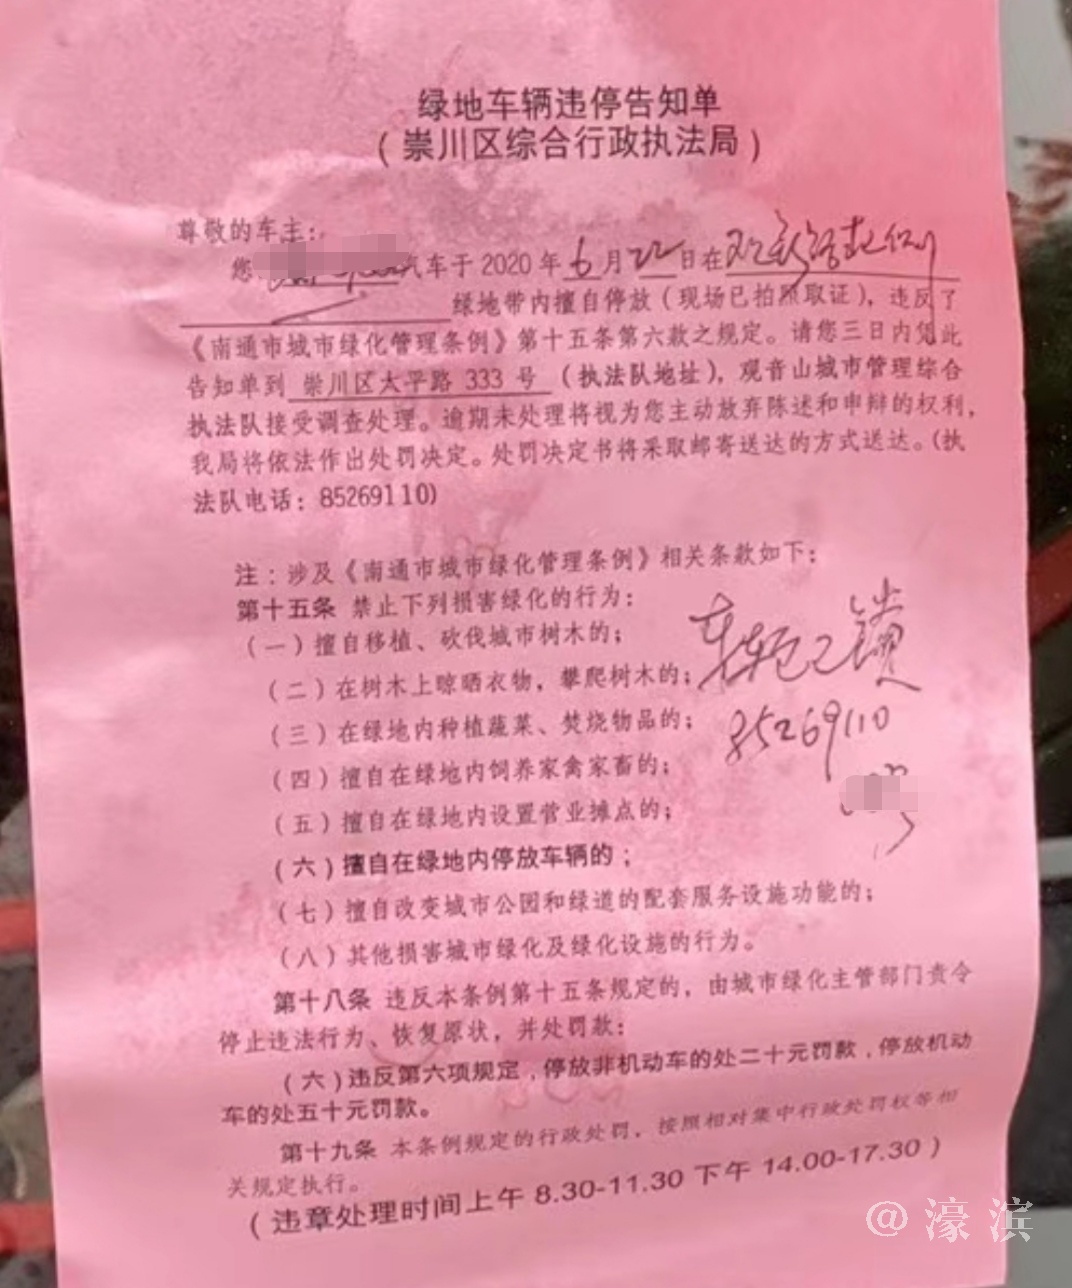 绿地车辆违停告知单
（崇川区综合行政执法局）
尊敬的车主：
您 汽车于 2020 年 6 月 22 日在
绿地带内擅自停放（现场已拍照取证），违反了
《南通市城市绿化管理条例》第十五条第六款之规定。请您三日内凭此
告知单到 崇川区太平路 333 号 （执法队地址），观音山城市管理综合
执法队接受调查处理。逾期未处理将视为您主动放弃陈述和申辩的权利，
我局将依法作出处罚决定。处罚决定书将采取邮寄送达的方式送达。(执
法队电话：85269110)
注：涉及《南通市城市绿化管理条例》相关条款如下：
第十五条 禁止下列损害绿化的行为：
（一）擅自移植、砍伐城市树木的；
（二）在树木上晾晒衣物，攀爬树木的；
（三）在绿地内种植蔬菜、焚烧物品的；
（四）擅自在绿地内饲养家禽家畜的；
（五）擅自在绿地内设置营业摊点的；
（六）擅自在绿地内停放车辆的；
（七）擅自改变城市公园和绿道的配套服务设施功能的；
（八）其他损害城市绿化及绿化设施的行为。
车轮已锁
85269110
第十八条 违反本条例第十五条规定的，由城市绿化主管部门责令
停止违法行为、恢复原状，并处罚款：
（六）违反第六项规定，停放非机动车的处二十元罚款，停放机动
车的处五十元罚款。
第十九条 本条例规定的行政处罚，按照相对集中行政处罚权等相
关规定执行。
（违章处理时间上午 8.30-11.30 下午 14.00-17.30）
@濠滨